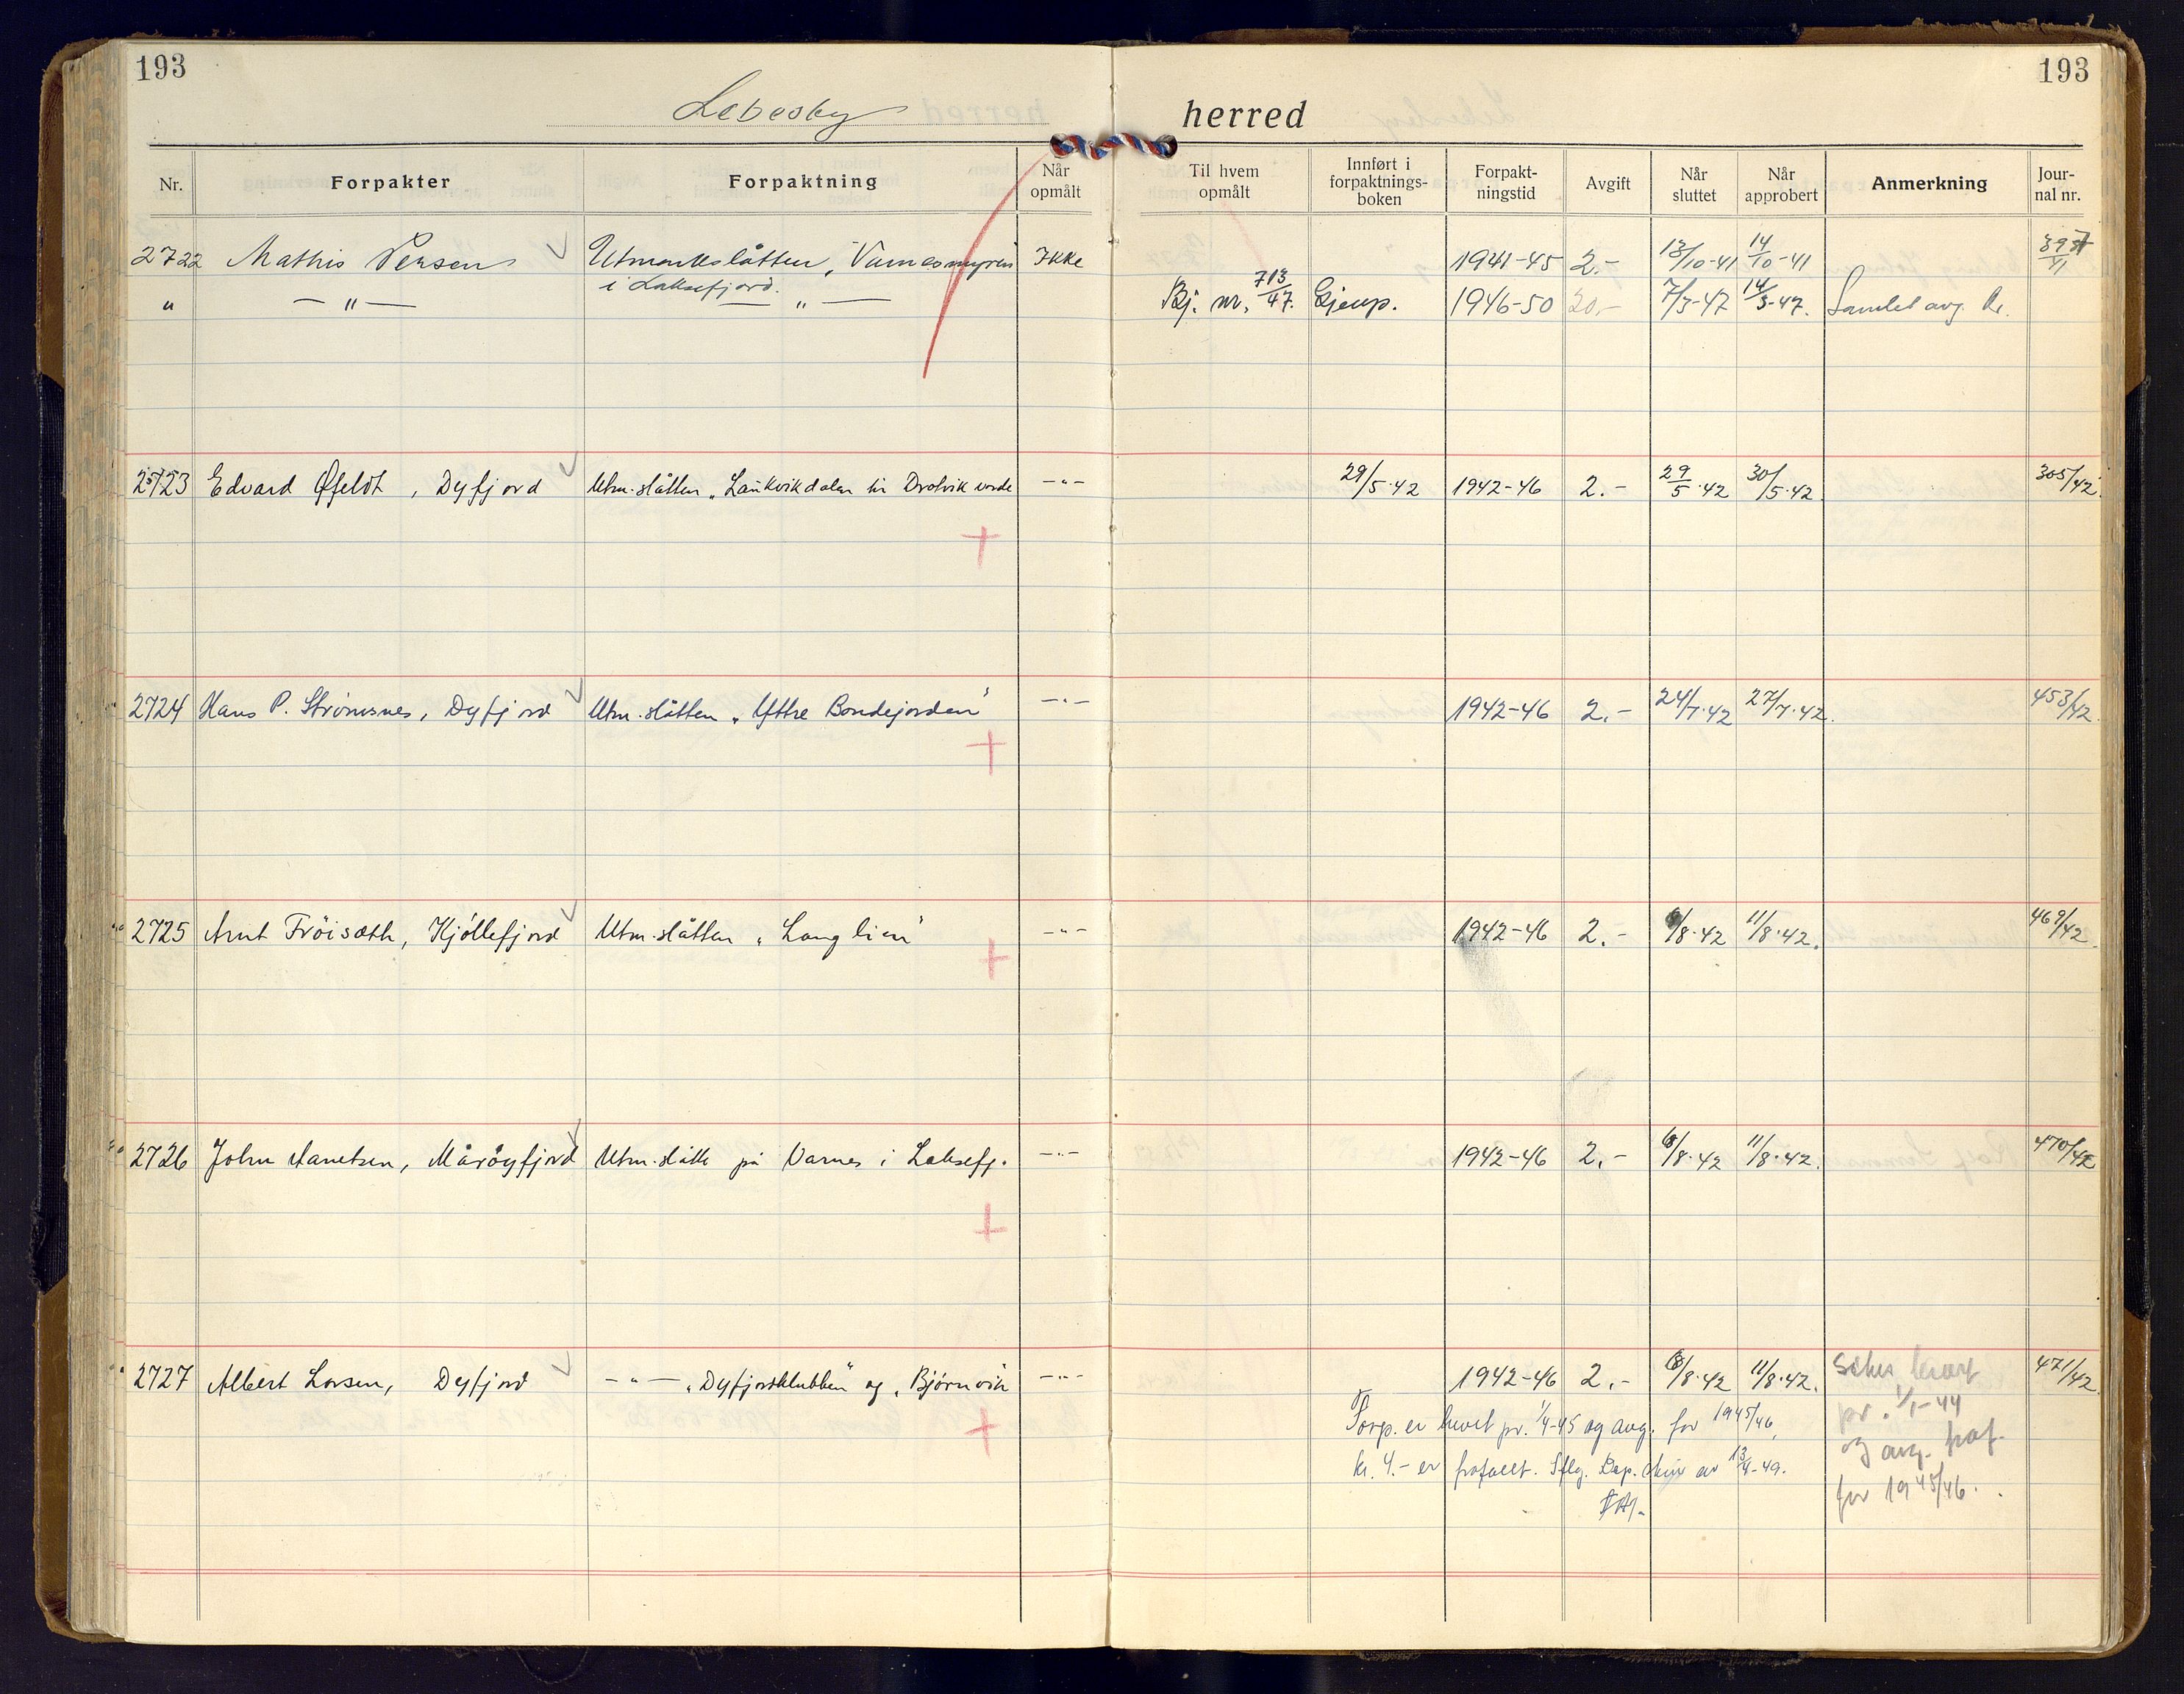 193
193
Lebesby herred
Nr. Forpakter Forpaktning Når opmålt Til hvem opmålt Innført i forpaktnings-boken Forpakt-ningstid Avgift Når sluttet Når approbert Anmerkning Jour-nal nr.
2722 Mathis Persen Utmarkslåtten "Varnesmyren Ikke 1941-45 2.- 13/10-41 14/10-41
i Laksefjord.
" —"— —"— Bj. nr. 713/47. Gjenp. 1946-50 20.- 7/3-47 14/3-47. Samlet avg.
2723 Edvard Øfeldt, Dyfjord Utm.slåtten „Laukvikdalen til Drotvik varde —"— 29/5.42 1942-46 2.- 29/5.42 30/5.42. 305/42.
2724 Hans P. Strömsnes, Dyfjord Utm.slåtten „Yttre Bondejorden" —"— 1942-46 2.- 24/7.42 27/7.42. 453/42.
2725 Arnt Fröisæth, Kjöllefjord Utm.slåtten „Langlien" —"— 1942-46 2.- 6/8.42 11/8.42. 469/42.
2726 John Aanetsen, Måröyfjord Utm.slåtte på Varnes i Laksefj. —"— 1942-46 2.- 6/8.42 11/8.42. 470/42
2727 Albert Larsen, Dyfjord —"— „Dyfjordklubben" og „Bjørnvik —"— 1942-46 2.- 6/8.42 11/8.42. 471/42.
pr. 1/1-44
Forp. er hevet pr. 1/4-45 og avg. for 1945/46,
og avg. fraf.
kr. 4.- er frafallt. Iflg. Dep. skriv av 13/4-49.
for 1945/46.